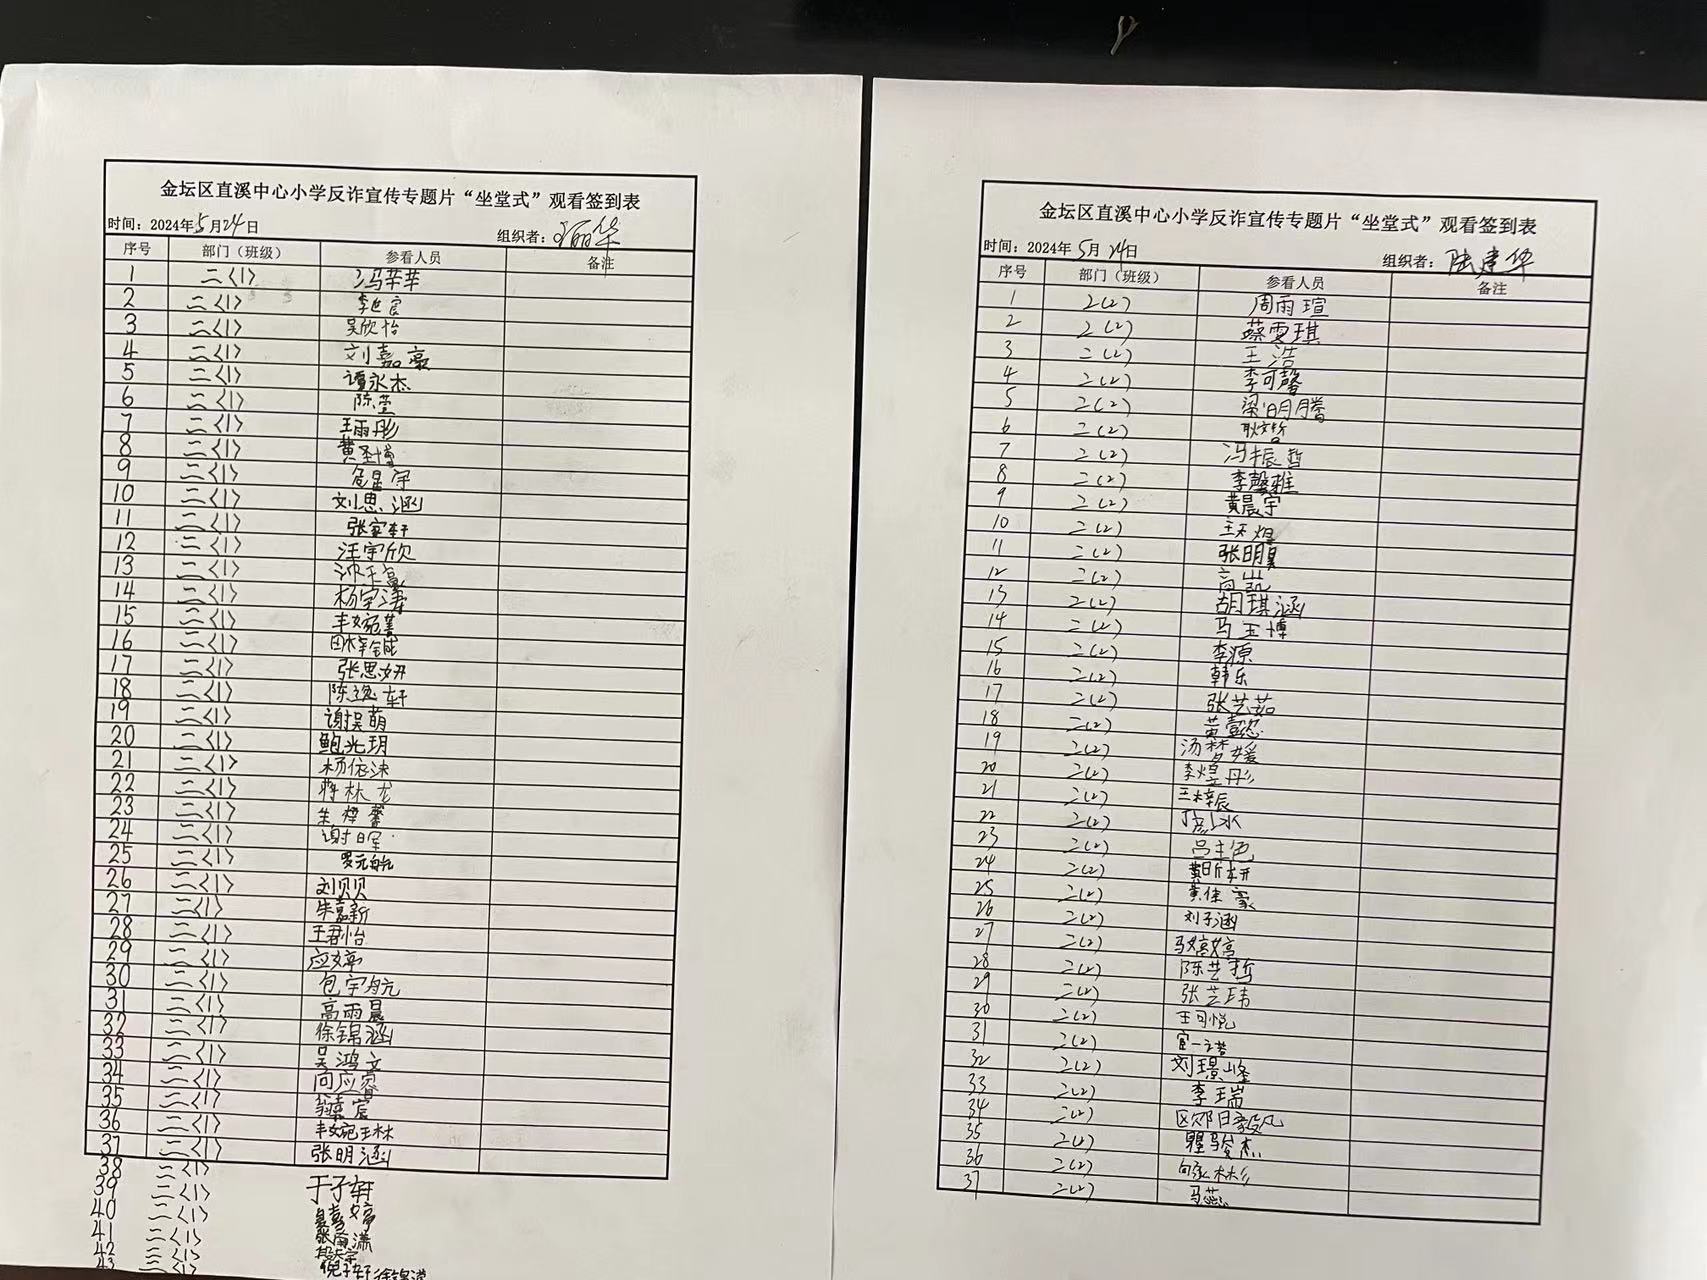 金坛区直溪中心小学反诈宣传专题片“坐堂式”观看签到表
时间：2024年5月24日 组织者：
序号 部门（班级） 参看人员 备注
1 二〈1〉 冯苹苹
2 二〈1〉
3 二〈1〉 吴欣怡
4 二〈1〉 刘嘉豪
5 二〈1〉 谭永杰
6 二〈1〉 陈萱
7 二〈1〉 王雨彤
8 二〈1〉 黄圣博
9 二〈1〉
10 二〈1〉 刘思涵
11 二〈1〉 张家轩
12 二〈1〉 汪宇欣
13 二〈1〉
14 二〈1〉 杨宇涛
15 二〈1〉
16 二〈1〉
17 二〈1〉 张思妍
18 二〈1〉 陈逸轩
19 二〈1〉 谢昊萌
20 二〈1〉 鲍光玥
21 二〈1〉
22 二〈1〉 蒋林龙
23 二〈1〉
24 二〈1〉 谢晖
25 二〈1〉 罗元航
26 二〈1〉 刘贝贝
27 二〈1〉 朱嘉新
28 二〈1〉 王君怡
29 二〈1〉 应婷
30 二〈1〉 包宇航
31 二〈1〉 高雨晨
32 二〈1〉 徐锦涵
33 二〈1〉 吴鸿文
34 二〈1〉 向应蓉
35 二〈1〉
36 二〈1〉 丰婉琳
37 二〈1〉 张明涵
38 二〈1〉
39 二〈1〉 于子轩
40 二〈1〉
41 二〈1〉 张雨潇
42 二〈1〉
43 二〈1〉 倪子轩
金坛区直溪中心小学反诈宣传专题片“坐堂式”观看签到表
时间：2024年5月24日 组织者：陆建华
序号 部门（班级） 参看人员 备注
1 二(2) 周雨瑄
2 二(2) 蔡雯琪
3 二(2) 王浩
4 二(2) 李可馨
5 二(2) 梁明腾
6 二(2)
7 二(2) 冯振哲
8 二(2) 李馨雅
9 二(2) 黄晨宇
10 二(2) 王天煜
11 二(2) 张明昊
12 二(2) 高凯
13 二(2) 胡琪涵
14 二(2) 马玉博
15 二(2) 李源
16 二(2) 韩乐
17 二(2) 张艺茹
18 二(2) 黄壹忽
19 二(2) 汤梦媛
20 二(2) 李煌彤
21 二(2) 王梓辰
22 二(2)
23 二(2)
24 二(2) 黄昕妍
25 二(2) 黄佳豪
26 二(2) 刘子涵
27 二(2)
28 二(2) 陈艺哲
29 二(2) 张芝玮
30 二(2) 王可悦
31 二(2) 宦一诺
32 二(2) 刘璟峰
33 二(2) 李瑞
34 二(2)
35 二(2) 瞿骏杰
36 二(2)
37 二(2) 马蕊